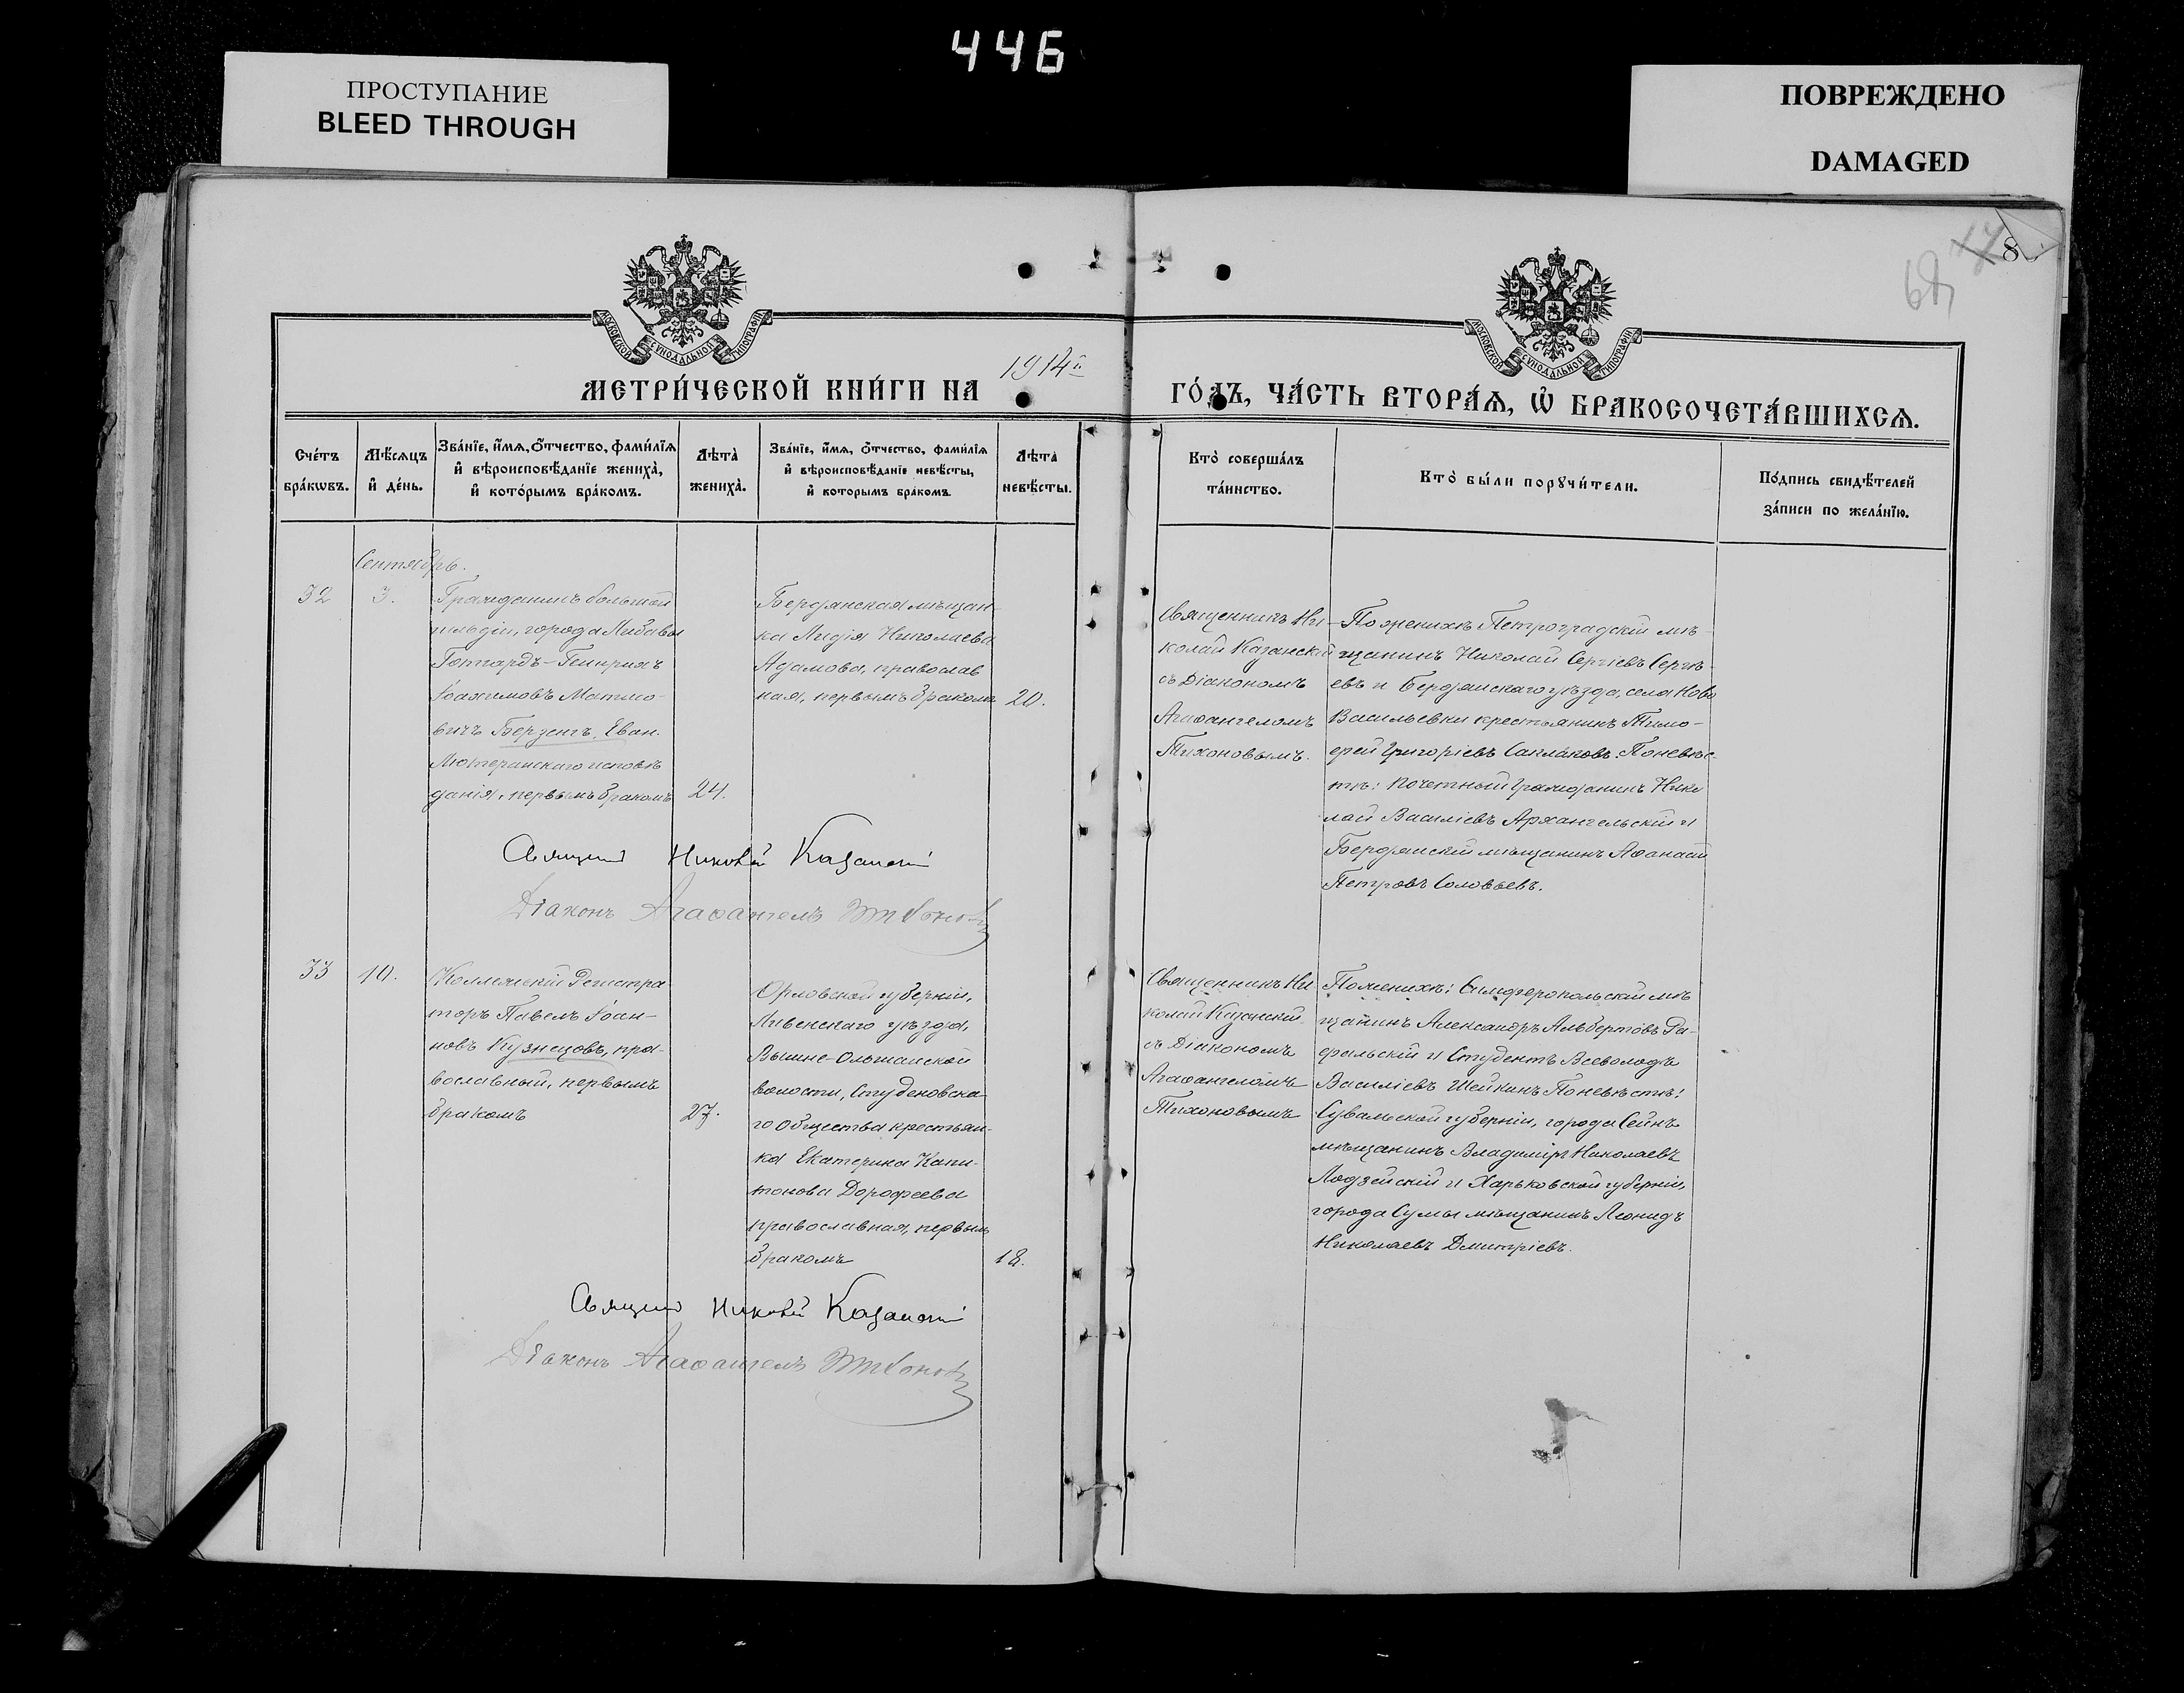 446
ПРОСТУПАНИЕ
BLEED THROUGH
ПОВРЕЖДЕНО
DAMAGED
68
8
МОСКОВСКОЙ СѴНОДАЛЬНОЙ ТИПОГРАФІИ
МОСКОВСКОЙ СѴНОДАЛЬНОЙ ТИПОГРАФІИ
МЕТРИ́ЧЕСКОЙ КНИ́ГИ НА 1914й
ГО́ДЪ, ЧА́СТЬ ВТОРА́Ѧ, Ѽ БРАКОСОЧЕТА́ВШИХСѦ.
Сче́тъ бра́кѡвъ.
Мѣ́сѧцъ и҆ де́нь.
Зва́нїе, и҆́мѧ, ѻ҆́тчество, фами́лїѧ и҆ вѣроисповѣ́данїе жениха̀, и҆ кото́рымъ бра́комъ.
Лѣта̀ жениха̀.
Зва́нїе, и҆́мѧ, ѻ҆́тчество, фами́лїѧ и҆ вѣроисповѣ́данїе невѣ́сты, и҆ которымъ бра́комъ.
Лѣта̀ невѣ́сты.
Кто̀ соверша́лъ та́инство.
Кто̀ бы́ли порꙋчи́тели.
По́дпись свидѣ́телей за́писи по жела́нїю.
Сентябрь.
32
3.
Гражданинъ большой
гильдіи, города Либавы
Готгардъ-Генрихъ
Іоахимовъ Матисо-
вичъ Берзенгъ, Еван.
Лютеранскаго исповѣ
данія, первымъ бракомъ
24.
Бердянская мѣщан-
ка Лидія Николаева
Адамова, православ
ная, первымъ бракомъ
20.
Священникъ Ни-
колай Казанскій
съ Діакономъ
Агаѳангеломъ
Тихоновымъ.
По женихѣ Петроградскій мѣ-
щанинъ Николай Сергіевъ Сергѣ-
евъ и Бердянскаго уѣзда, села Ново
Васильевки крестьянинъ Тимо-
ѳей Григоріевъ Саклаковъ. По невѣс-
тѣ: Почетный Гражданинъ Нико
лай Василіевъ Архангельскій и
Бердянскій мѣщанинъ Аѳанасій
Петровъ Соловьевъ.
Священникъ Николай Казанскій
Діаконъ Агаѳангелъ Тихоновъ
33
10.
Коллежскій Регистра
торъ Павелъ Іоан-
новъ Кузнецовъ, пра-
вославный, первымъ
бракомъ
27.
Орловской губерніи,
Ливенскаго уѣзда,
Вышне-Ольшанской
волости, Студеновска
го Общества крестьян-
ка Екатерина Капи-
тонова Дорофеева
православная, первымъ
бракомъ
18.
Священникъ Ни
колай Казанскій
съ Діакономъ
Агаѳангеломъ
Тихоновымъ
По женихѣ: Симферопольскій мѣ
щанинъ Александръ Альбертовъ Ра-
фальскій и Студентъ Всеволодъ
Василіевъ Шейкинъ По невѣстѣ:
Сувальской губерніи, города Сейнъ
мѣщанинъ Владиміръ Николаевъ
Лодзейскій и Харьковской губерніи,
города Сумы мѣщанинъ Леонидъ
Николаевъ Дмитріевъ.
Священникъ Николай Казанскій
Діаконъ Агаѳангелъ Тихоновъ